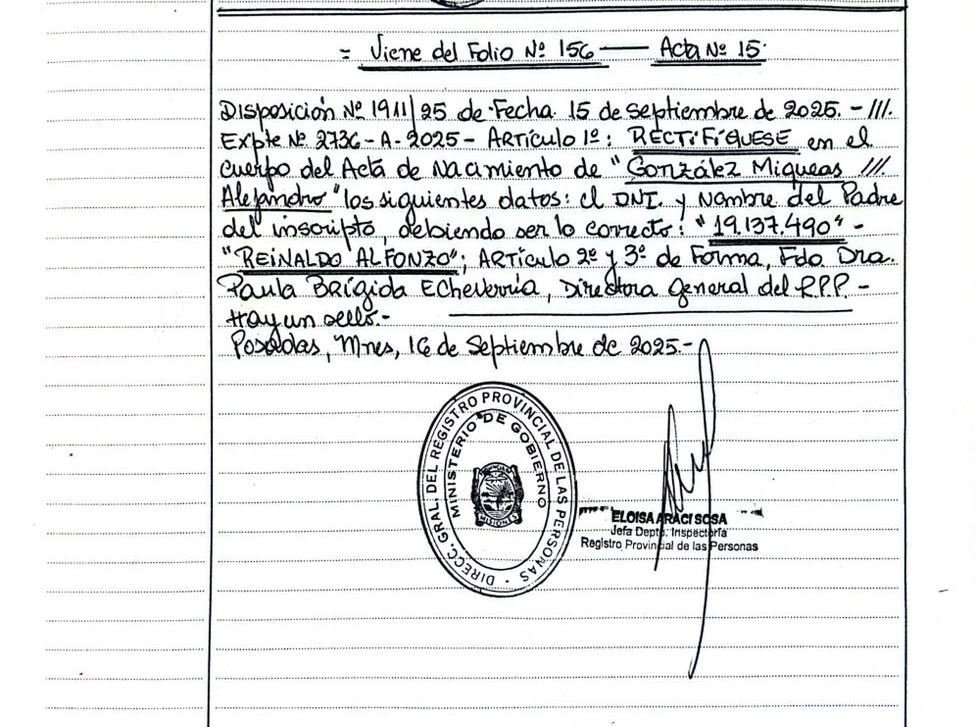 = Viene del Folio Nº 156 — Acta Nº 15.
Disposición Nº 1911/25 de Fecha. 15 de Septiembre de 2025. - ///.
Expte Nº 2736-A-2025- Artículo 1º: RECTIFÍQUESE en el
cuerpo del Acta de Nacimiento de "González Miqueas ///.
Alejandro" los siguientes datos: el DNI. y Nombre del Padre
del inscripto, debiendo ser lo correcto: "19.137.490" -
"REINALDO ALFONZO"; Artículo 2º y 3º de Forma, Fdo Dra.
Paula Brígida Echeverría, Directora General del R.P.P. -
Hay un sello.-
Posadas, Mnes, 16 de Septiembre de 2025.-
DIRECC. GRAL. DEL REGISTRO PROVINCIAL DE LAS PERSONAS
MINISTERIO DE GOBIERNO
MISIONES
ELOISA ARACI SOSA
Jefa Depto. Inspectoría
Registro Provincial de las Personas